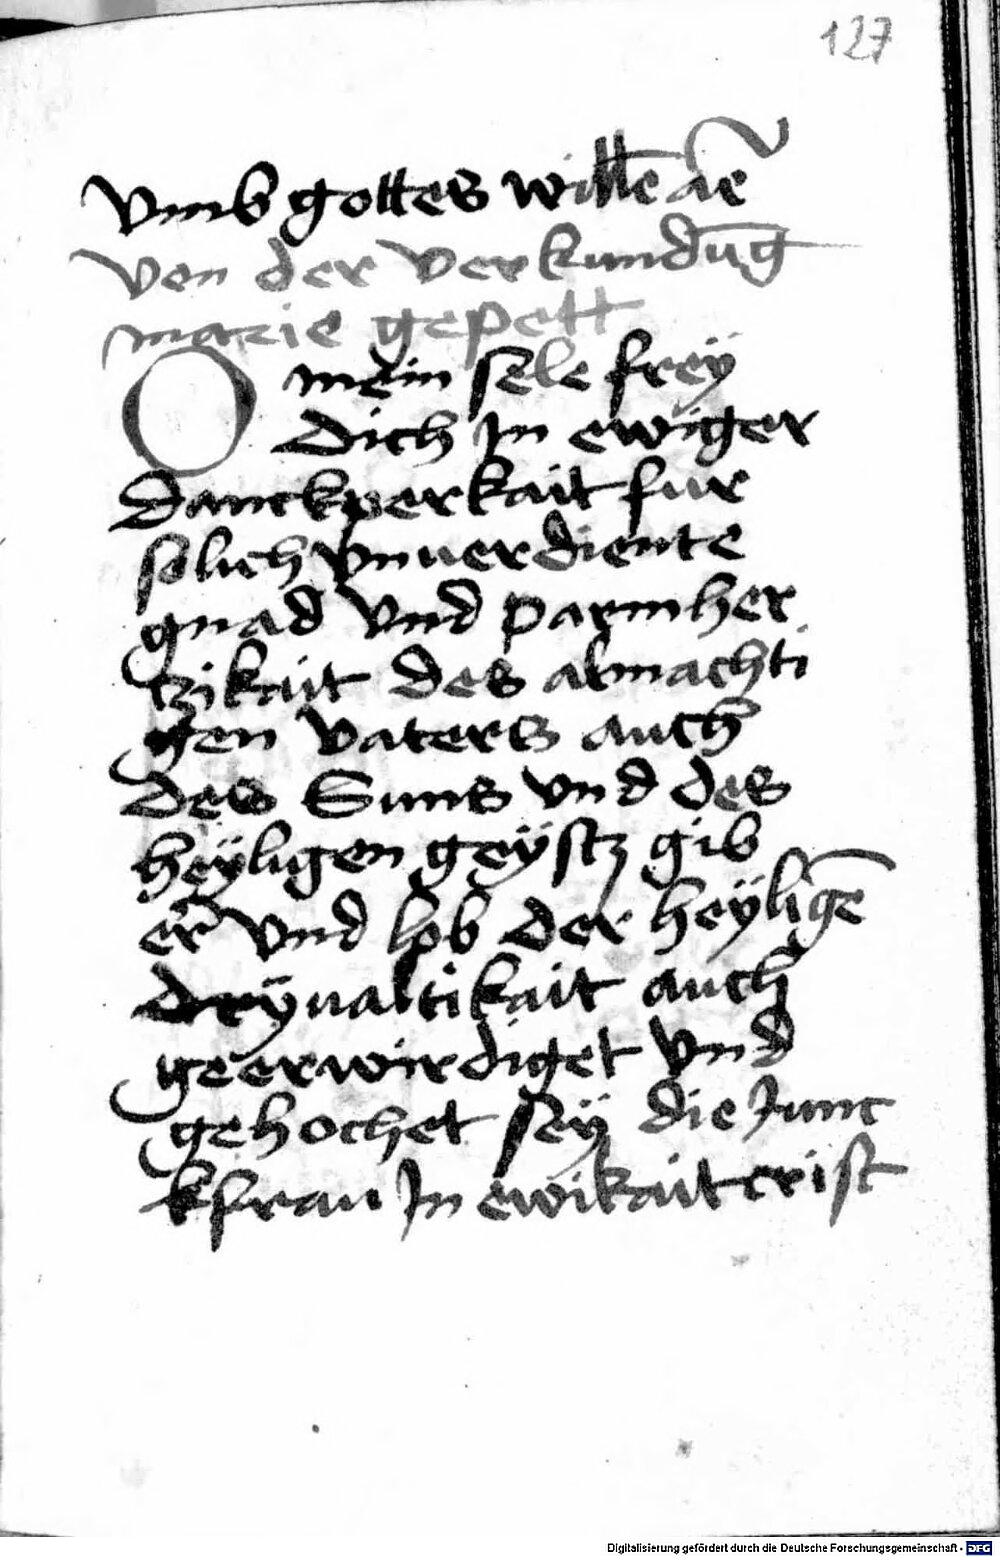 127
vmb gottes willē am̄
Von der verkundūg
marie gepett
O mein sele freÿ
dich In ewiger
danckperkait fur
solich vnuerdiente
gnad vnd parmher
tzikait des almachti
gen vaters auch
des Suns vnd des
heÿligen geÿstz gib
er vnd lob der heÿligē
drÿualtikait auch
geerwirdiget vnd
gehochet seÿ die Junc
kfrau In ewikait crist
Digitalisierung gefördert durch die Deutsche Forschungsgemeinschaft - DFG